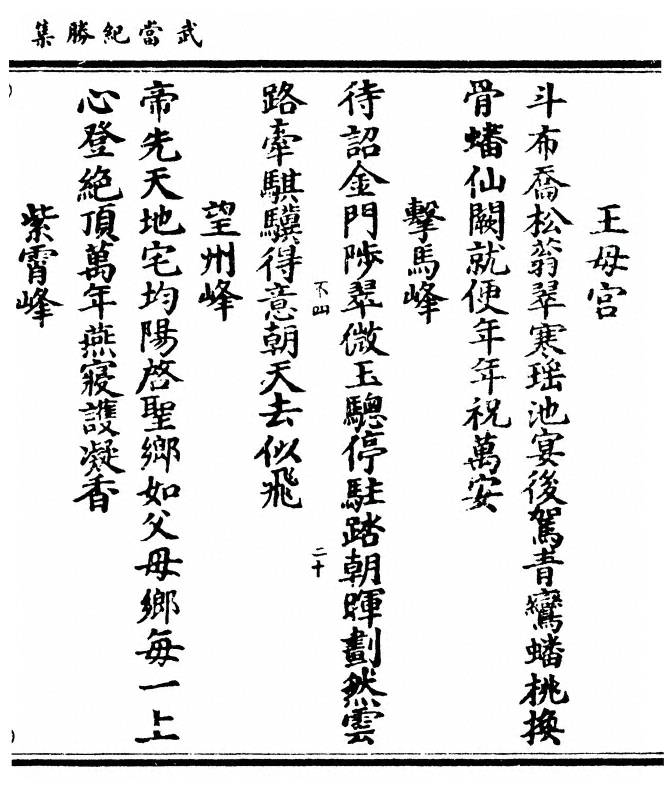 武當紀勝集
王母宫
斗布喬松蓊翠寒瑶池宴後駕青鸞蟠桃換
骨蟠仙闕就便年年祝萬安
擊馬峰
待詔金門陟翠微玉驄停駐踏朝暉劃然雲
路牽騏驥得意朝天去似飛
不四
二十
望州峰
帝先天地宅均陽啓聖鄉如父母鄉每一上
心登絶頂萬年燕寢護凝香
紫霄峰